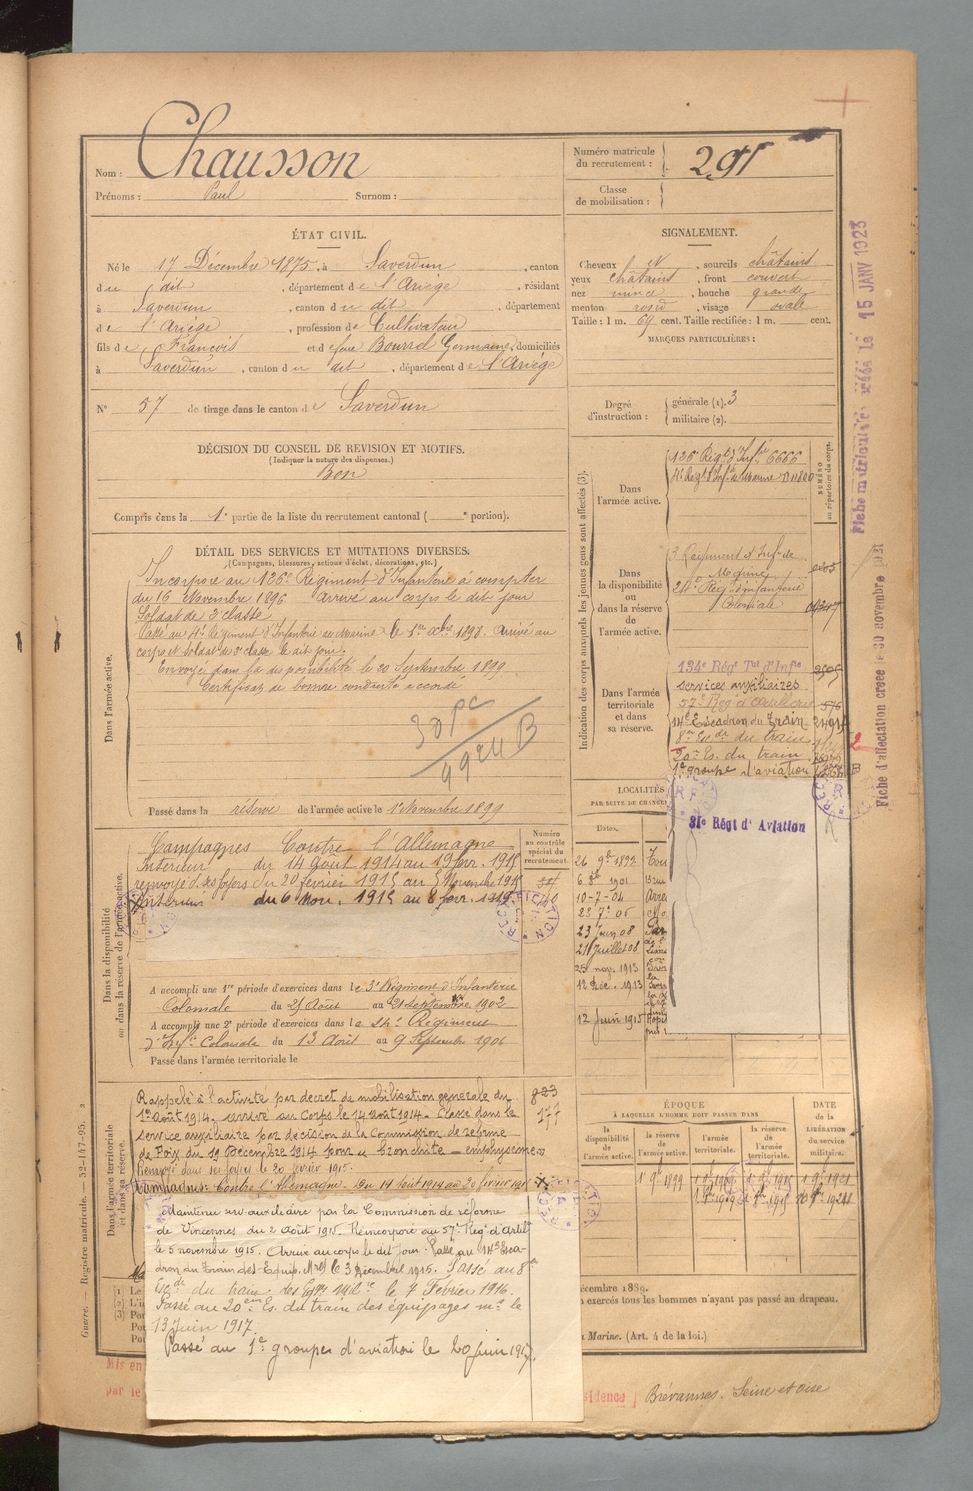 Nom : Chausson
Prénoms : Paul Surnom :
Numéro matricule du recrutement : 291
Classe de mobilisation :
ÉTAT CIVIL.
Né le 17 Décembre 1875, à Saverdun, canton
du dit, département de l'Ariège, résidant
à Saverdun, canton du dit, département
de l'Ariège, profession de Cultivateur
fils de François et de Bourrel Germaine, domiciliés
à Saverdun, canton du dit, département de l'Ariège
N° 57 de tirage dans le canton de Saverdun
SIGNALEMENT.
Cheveux N, sourcils châtains
yeux châtains, front couvert
nez mince, bouche grande
menton rond, visage ovale
Taille : 1 m. 69 cent. Taille rectifiée : 1 m. cent.
MARQUES PARTICULIÈRES :
Degré d'instruction : générale (1). 3
militaire (2).
DÉCISION DU CONSEIL DE REVISION ET MOTIFS.
(Indiquer la nature des dispenses.)
Bon
Compris dans la 1e partie de la liste du recrutement cantonal ( e portion).
DÉTAIL DES SERVICES ET MUTATIONS DIVERSES.
(Campagnes, blessures, actions d'éclat, décorations, etc.)
Dans l'armée active.
Incorporé au 126e Régiment d'Infanterie à compter
du 16 Novembre 1896 Arrivé au corps le dit jour
Soldat de 2e classe
Passé au 4e Régiment d'Infanterie de Marine le 1er Xbre 1897. Arrivé au
corps et soldat de 2e classe le dit jour.
Envoyé dans la disponibilité le 20 Septembre 1899
Certificat de bonne conduite accordé
Passé dans la réserve de l'armée active le 1er Novembre 1899
Indication des corps auxquels les jeunes gens sont affectés (3).
NUMÉRO au répertoire du corps.
Dans l'armée active.
126e Régt d'Infie 6666
4e Régt d'Infie de Marine
Dans la disponibilité ou dans la réserve de l'armée active.
3 Régiment d'Infie de
Marine
24e Rég. d'infanterie
Coloniale
Dans l'armée territoriale et dans sa réserve.
134e Régt Tal d'Infie
services auxiliaires
57e Reg d'artillerie 576
14e Escadron du Train
8me Esde du train
20e Es. du train
1e groupe d'aviation
31e Régt d'Aviation
LOCALITÉS
Dates.
26 9bre 1899
6 8bre 1901
10-7-04
23 7e 06
23 Juin 08
21 Juillet 08
25 nov. 1913
12 Déc. 1913
12 Juin 1915
Dans la disponibilité ou dans la réserve de l'armée active.
Numéro au contrôle spécial du recrutement.
Campagnes Contre l'Allemagne
Intérieur du 14 Août 1914 au 19 fevr. 1915
renvoyé ds ses foyers du 20 février 1915 au 5 Novembre 1915
Intérieur du 6 Nov. 1915 au 8 fevr. 1919
A accompli une 1re période d'exercices dans le 3e Régiment d'Infanterie
Coloniale du 25 Août au 21 Septembre 1902
A accompli une 2e période d'exercices dans le 24e Régiment
d'Infie Coloniale du 13 Août au 9 Septembre 1906
Passé dans l'armée territoriale le
Dans l'armée territoriale et dans sa réserve.
Rappelé à l'activité par décret de mobilisation générale du
1er Août 1914. arrivé au Corps le 14 Août 1914. Classé dans le
service auxiliaire par décision de la Commission de réforme
de Foix du 19 Décembre 1914 pour "bronchite - emphysème"
Renvoyé dans ses foyers le 20 février 1915.
Campagnes: Contre l'Allemagne. Du 14 août 1914 au 20 février 1915
Maintenu serv. auxiliaire par la Commission de réforme
de Vincennes du 2 Août 1915. Réincorporé au 57e Reg d'Artie
le 5 novembre 1915. Arrivé au corps le dit jour. Passé au 14e Esca-
dron du Train des Equip. Mres le 3 Décembre 1915. Passé au 8e
Escde du train des Eqges Milres le 7 Février 1916.
Passé au 20eme Es. du train des équipages mre le
13 Juin 1917.
Passé au 1e groupes d'aviation le 20 juin 1917.
823
177
ÉPOQUE
À LAQUELLE L'HOMME DOIT PASSER DANS
la disponibilité de l'armée active.
la réserve de l'armée active.
l'armée territoriale.
la réserve de l'armée territoriale.
DATE de la LIBÉRATION du service militaire.
1 9bre 1899
écembre 1889.
n exercés tous les hommes n'ayant pas passé au drapeau.
Marine. (Art. 4 de la loi.)
Mis en
par le
sidence
Brévannes. Seine et Oise
Guerre. — Registre matricule. — 52-147-95.
Fiche matriculaire créée le 15 JANV 1923
Fiche d'affectation créée le 30 novembre 1921